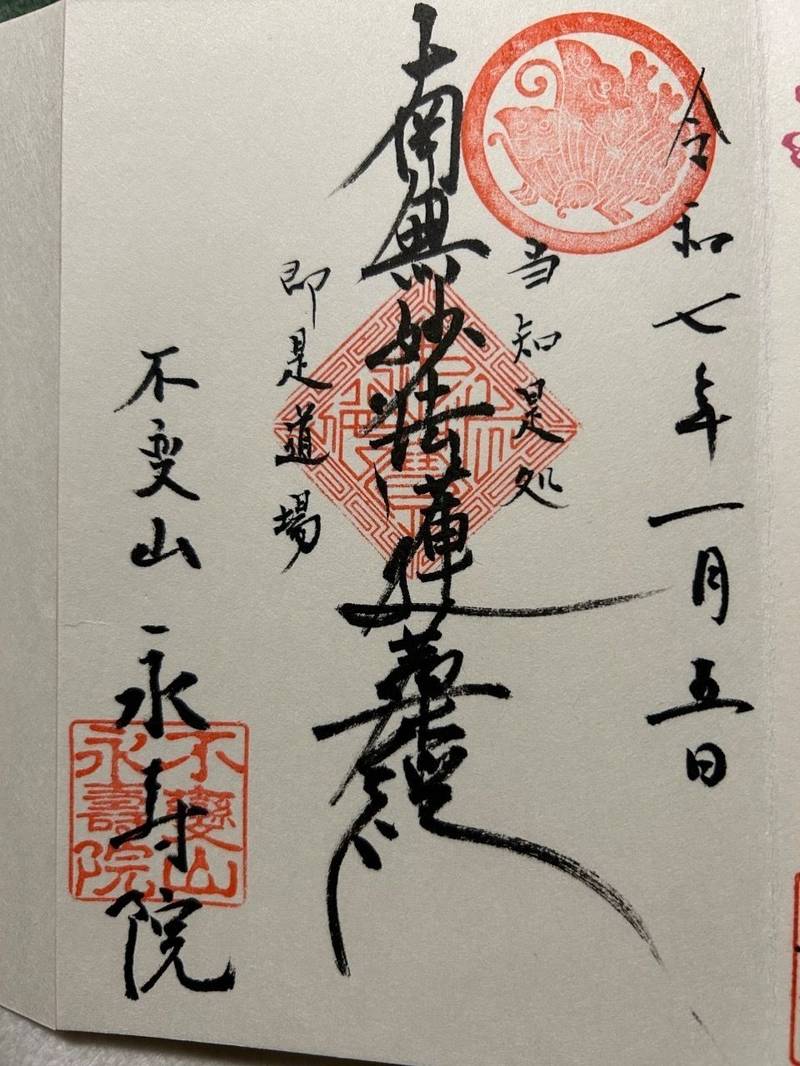 令和七年一月五日
当知是処
南無妙法蓮華経
即是道場
不変山永寿院
不變山
永壽院